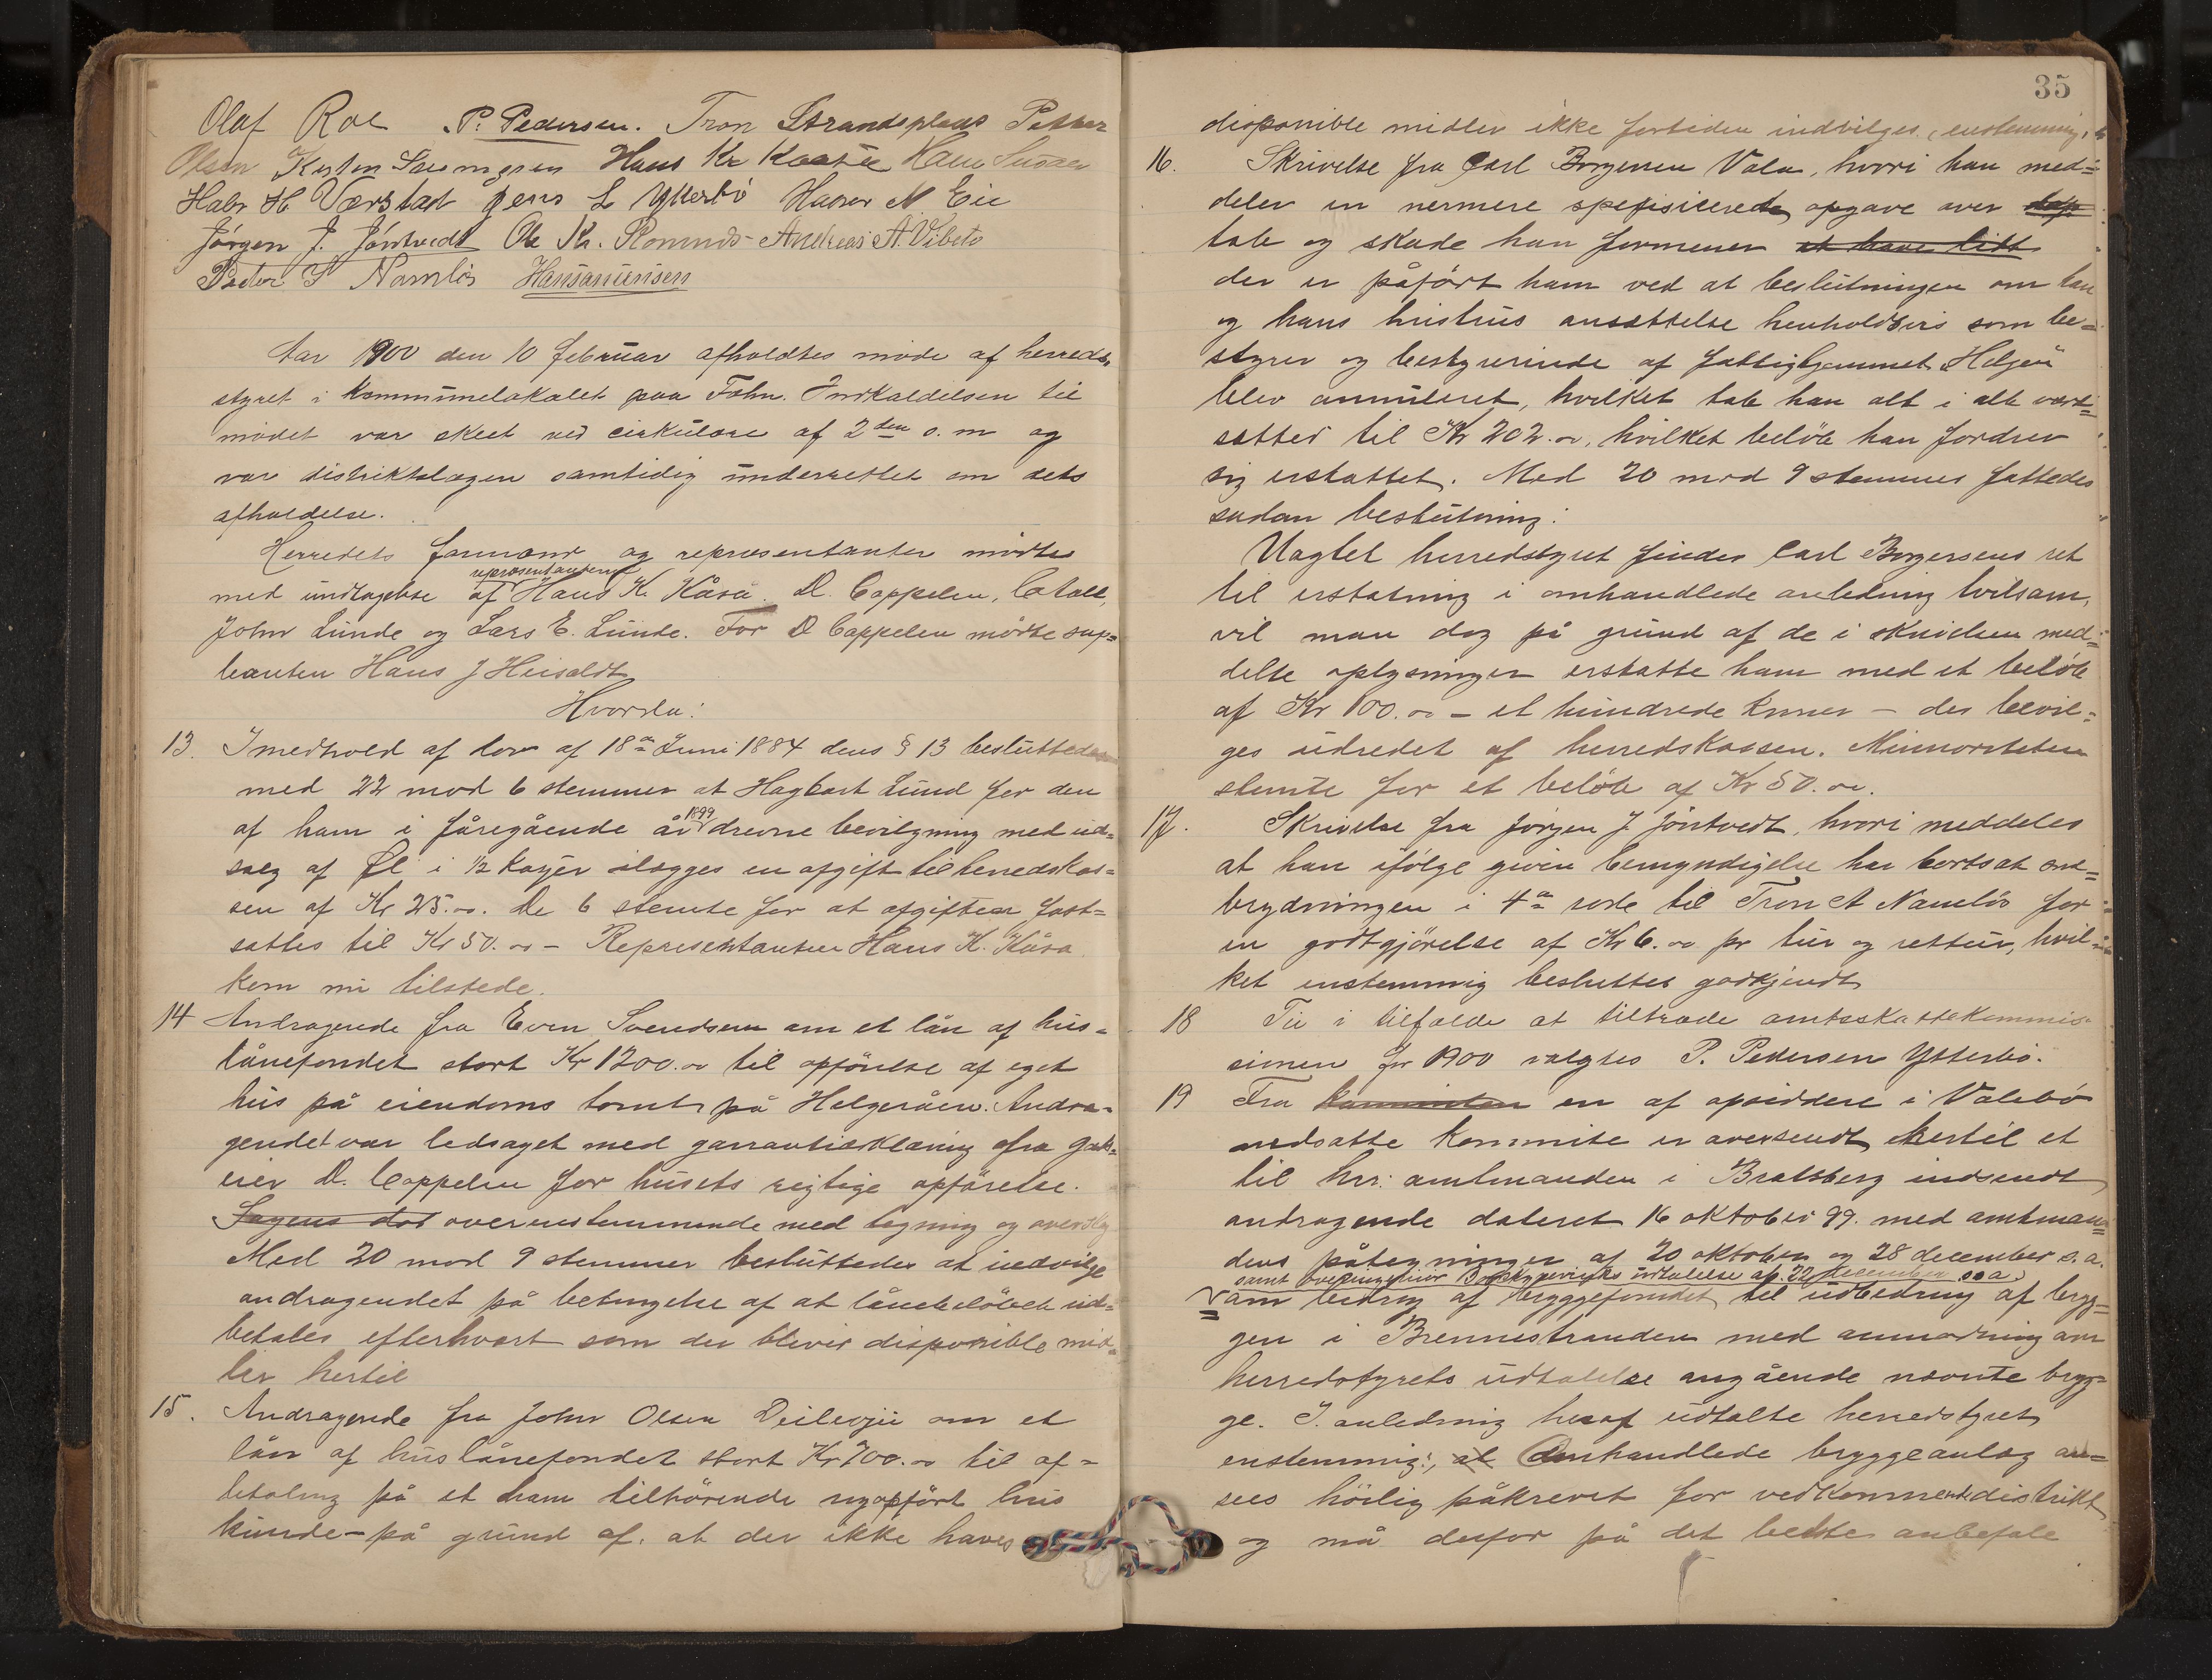 Olaf Roe P. Pedersen. Tron Strandsplads Petter
Olsen Hans Kr Kaasa Hans
Halv H. Værstad Jens L Ytterbö Hans N Eie
Jörgen J. Jöntvedt Ole Kr. Romnes Andreas A. Vibeto
Peder S Namlös Hans
Aar 1900 den 10 februar afholdtes möde af herreds-
styret i kommunelokalet paa Fahn. Indkaldelsen til
mödet var skeet ved cirkulære af 2den d. m og
var distriktslægen samtidig underrettet om dets
afholdelse.
Herredets formænd og repræsentanter mödte
med undtagelse af representanterne Hans K. Kåsa. D. Cappelen,
John Lunde og Lars E. Lunde. For D Cappelen mödte sup=
leanten Hans J Heisholdt
Hvorda:
13. I medhold af lov af 18de Juni 1884 dens § 13 besluttedes
med 22 mod 6 stemmer at Hagbart Lund for den
af ham i fåregående år 1899 drevne bevilgning med ud-
salg af Øl i 1/2 kagger ilægges en afgift til herredskas=
sen af Kr 25.00. De 6 stemte for at afgiften fast=
sattes til Kr 50.00 - Representanten Hans K. Kåsa
kom nu tilstede.
14 Andragende fra Even Svendsen om et lån af hus=
lånefondet stort Kr 1200.00 til opförelse af eget
hus på eiendoms tomt på Helgeråen. Andra=
gendet var ledsaget med garrantierklæring fra gods-
eier D. Cappelen for husets rigtige opförelse.
Sagens dok overensstemmende med tegning og overslag
Med 20 mod 9 stemmer besluttedes at indvilge
andragendet på betingelse af at lånebelöbet ud=
betales efterhvert som der blever disponible mid=
ler hertil
15. Andragende fra John Olsen om et
lån af huslånefondet stort Kr 700.00 til af=
betaling på et ham tilhörende nyopfört hus
kunde - på grund af. at der ikke haves
35
disponible midler ikke fortiden indvilges. enstemmig.
16. Skrivelse fra Carl Borgersen Vala, hvori han med=
deler en nermere spesifisicerede opgave over
tab og skade han formener at have lidt
der er påfört ham ved at beslutningen om han
og hans hustrus ansættelse henholdsvis som be=
styrer og bestyrerinde af fattighjemmet "Helgen"
blev annuleret, hvilket tab han alt i alt værd=
setter til Kr 202.00, hvilket belöb han fordrer
sig erstattet. Med 20 mod 9 stemmer fattedes
sådan beslutning:
Uagtet herredstyret finder Carl Borgersens ret
til erstatning i omhandlede anledning tvilsam,
vil man dog på grund af de i skrivelsen med=
delte oplysninger erstatte ham med et belöb
af Kr 100.00 - et hundrede kroner - der bevil=
ges udredet af herredskassen. Minnoriteten
stemte for et belöb af Kr 50.00.
17. Skrivelse fra Jörgen J. Jöntvedt, hvori meddeles
at han ifölge given bemyndigelse har bortsat sne=
brydningen i 4de rode til Tron A Namlös for
en godtgjörelse af Kr 6.00 pr tur og rettur, hvil=
ket enstemmig besluttes godkjendt
18 Til i tilfælde at tiltræde amtsskattekommis=
sionen for 1900 valgtes P. Pedersen Ytterbö.
19 Fra kommiteen en af opsiddere i Valebö
nedsatte kommite er oversendt hertil et
til hrr: amtmanden i Bratsberg indsendt
andragende dateret 16 oktober 99. med amtman=
dens påtegninger af 20 oktober og 28 december s.a.
samt udtalelse af 22 december s.a.
om bidrag af bryggefondet til udbedring af bryg=
gen i Brennestranden med anmodning om
herredstyrets udtalelse angående nævnte bryg=
ge. I anledning heraf udtalte herredstyret
enstemmig:, at Omhandlede bryggeanlæg an=
sees höilig påkrevet for vedkommende distrikt
og må derfor på det bedste anbefale